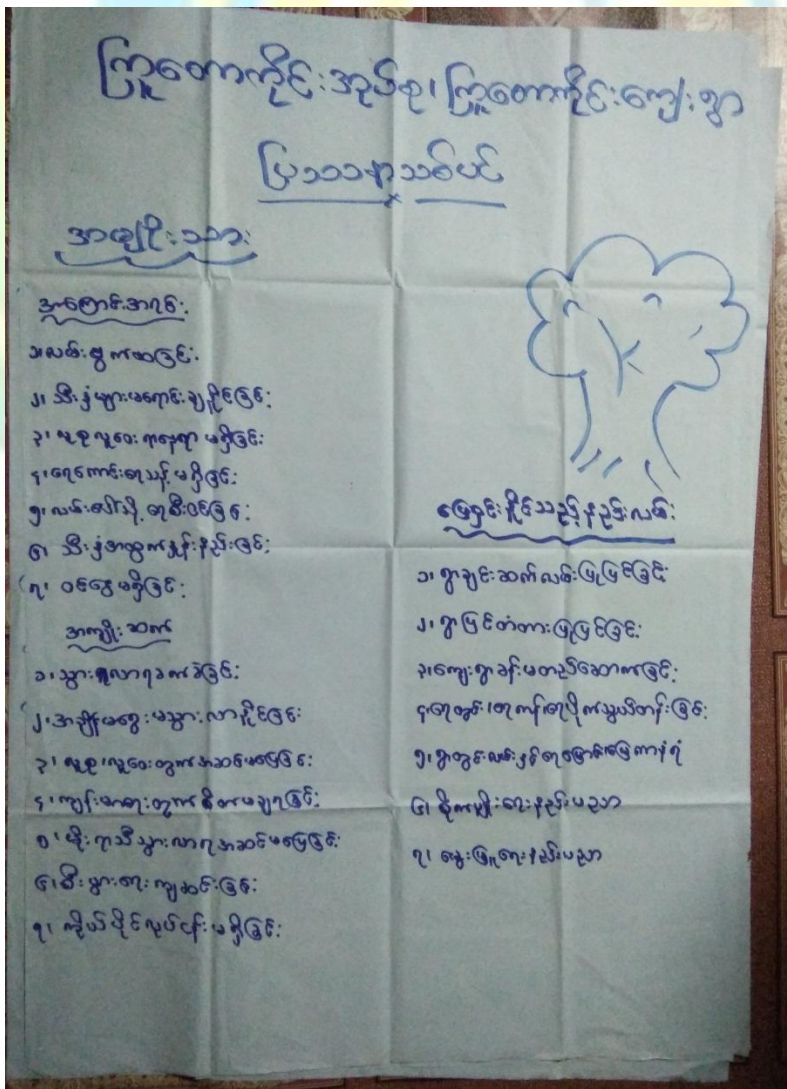 ကြူတောကိုင်းအုပ်စု၊ ကြူတောကိုင်းကျေးရွာ
ပြဿနာသစ်ပင်
အမျိုးသား
အကြောင်းအရင်း
၁၊ လမ်းပျက်ဆီးခြင်း
၂၊ သီးနှံများမရောင်းချနိုင်ခြင်း
၃၊ လူစုလူဝေးနေရာမရှိခြင်း
၄၊ ရေကောင်းရေသန့်မရှိခြင်း
၅၊ လမ်းပေါ်သို့ရေစီးဝင်ခြင်း
၆၊ သီးနှံအထွက်နှုန်းနည်းခြင်း
၇၊ ဝင်ငွေမရှိခြင်း
အကျိုးဆက်
၁၊ သွားလာရခက်ခဲခြင်း
၂၊ အချိန်မရွေးမသွားလာနိုင်ခြင်း
၃၊ လူစုလူဝေးတွက်အဆင်မပြေခြင်း
၄၊ ကျန်းမာရေးတွက်စိတ်မချရခြင်း
၅၊ မိုးရာသီသွားလာရအဆင်မပြေခြင်း
၆၊ စီးပွားရေးကျဆင်းခြင်း
၇၊ ကိုယ်ပိုင်လုပ်ငန်းမရှိခြင်း
ဖြေရှင်းနိုင်သည့်နည်းလမ်း
၁၊ ရွာချင်းဆက်လမ်းပြုပြင်ခြင်း
၂၊ ရွာပြင်တံတားပြုပြင်ခြင်း
၃၊ ကျေးရွာခန်းမတည်ဆောက်ခြင်း
၄၊ ရေတွင်း၊ ရေကန်၊ ရေပိုက်သွယ်တန်းခြင်း
၅၊ ရွာတွင်းလမ်းနှင့်ရေမြောင်းမြေကာနံရံ
၆၊ စိုက်ပျိုးရေးနည်းပညာ
၇၊ မွေးမြူရေးနည်းပညာ